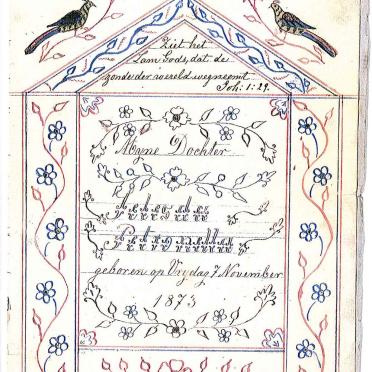 Ziet het
Lam Gods, dat de
zonde der wereld wegneemt
Joh: 1:29.
Myne Dochter
geboren op Vrydag 7 November
1873